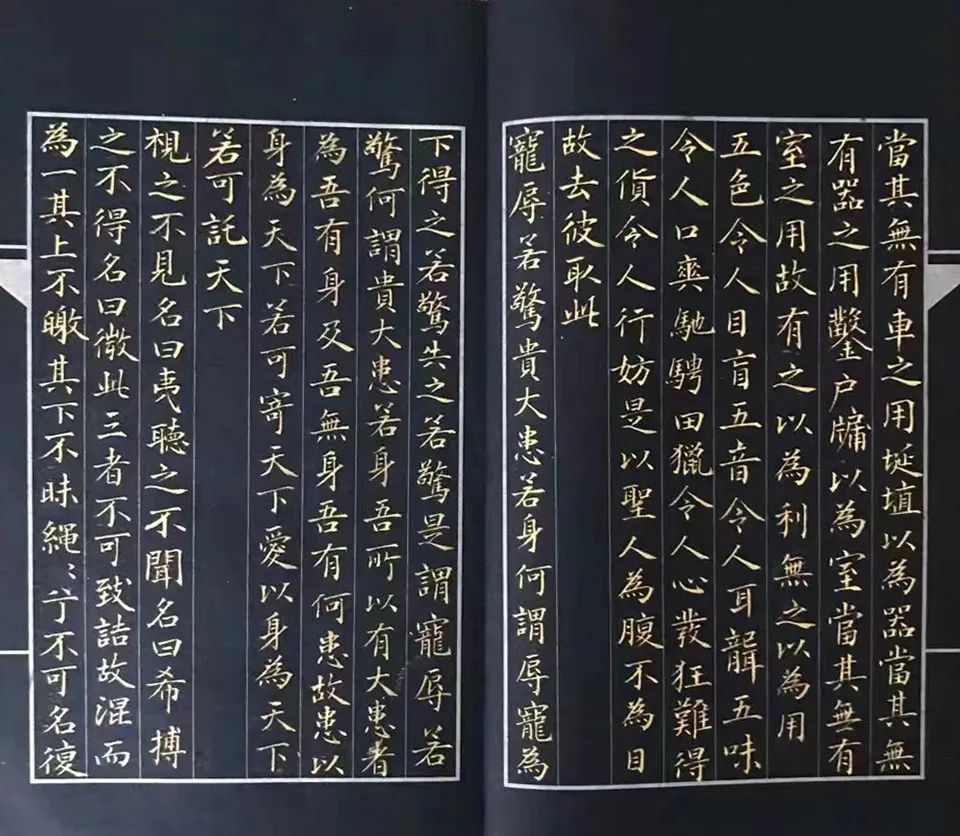 當其無有車之用埏埴以為器當其無
有器之用鑿户牖以為室當其無有
室之用故有之以為利無之以為用
五色令人目盲五音令人耳聾五味
令人口爽馳騁田獵令人心發狂難得
之貨令人行妨是以聖人為腹不為目
故去彼取此
寵辱若驚貴大患若身何謂辱寵為
下得之若驚失之若驚是謂寵辱若
驚何謂貴大患若身吾所以有大患者
為吾有身及吾無身吾有何患故患以
身為天下若可寄天下愛以身為天下
若可託天下
視之不見名曰夷聽之不聞名曰希搏
之不得名曰微此三者不可致詰故混而
為一其上不皦其下不昧繩〻兮不可名復